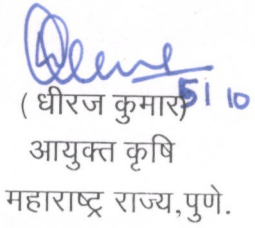 5/10
( धीरज कुमार)
आयुक्त कृषि
महाराष्ट्र राज्य,पुणे.